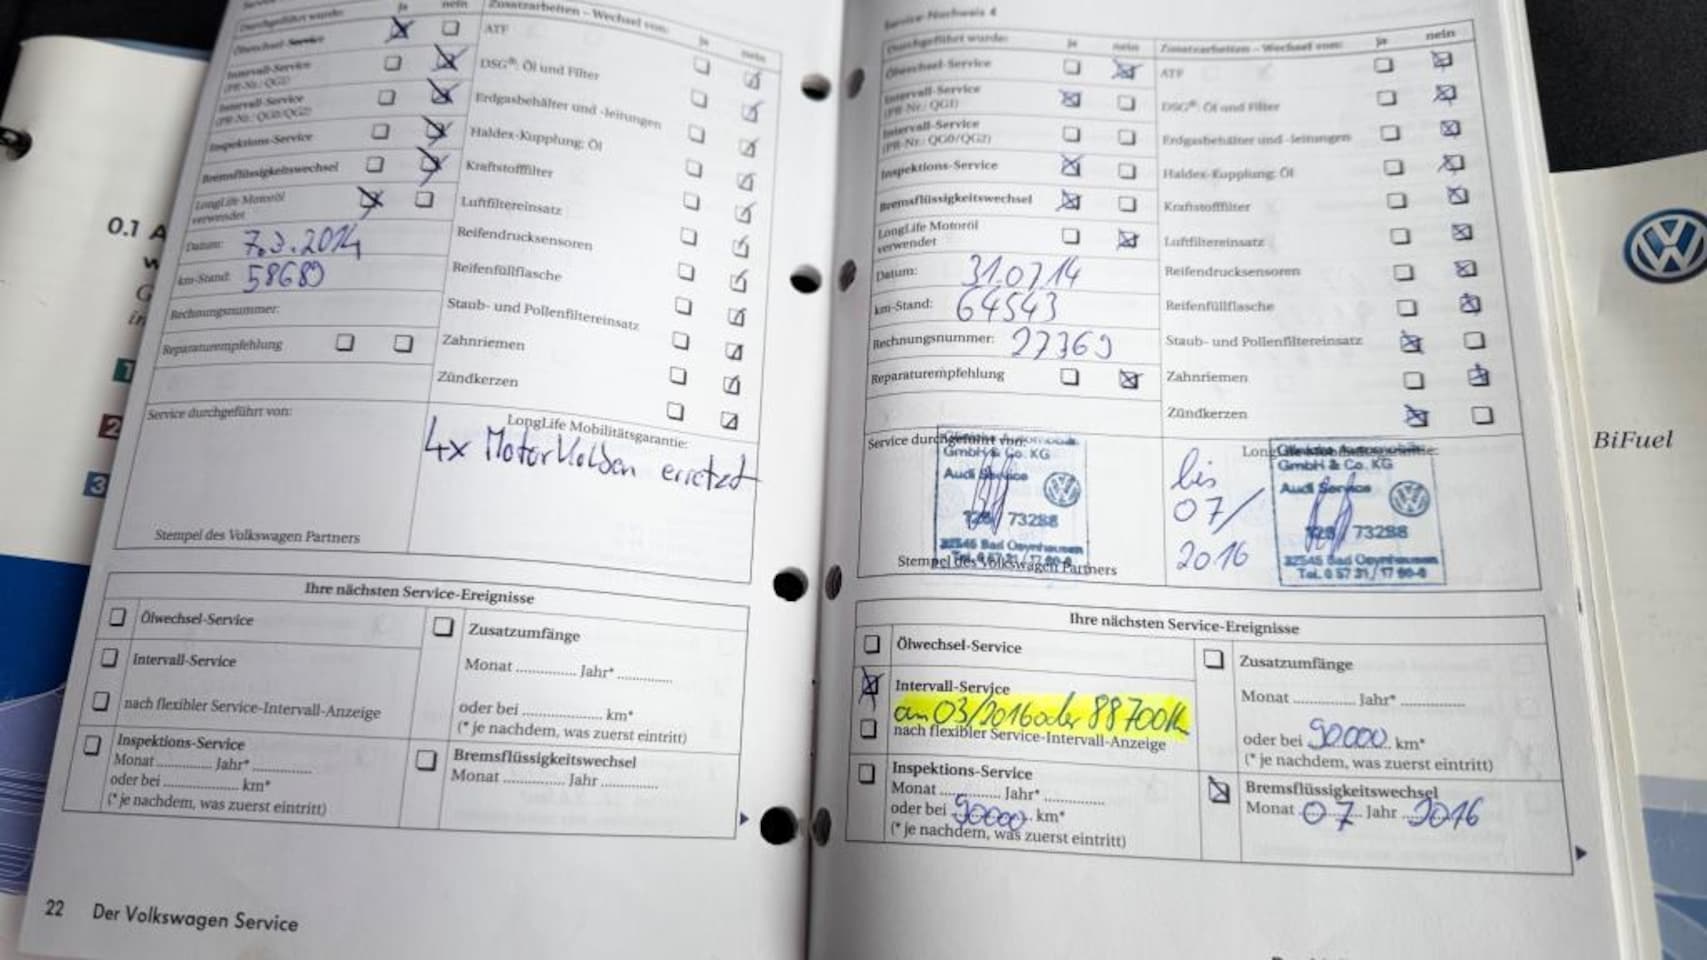 Durchgeführt wurde:
ja
nein
Zusatzarbeiten – Wechsel von:
ja
nein
Ölwechsel-Service
ATF
Intervall-Service
(PR-Nr.: QG1)
DSG®: Öl und Filter
Intervall-Service
(PR-Nr.: QG0/QG2)
Erdgasbehälter und -leitungen
Inspektions-Service
Haldex-Kupplung: Öl
Bremsflüssigkeitswechsel
Kraftstofffilter
LongLife Motoröl
verwendet
Luftfiltereinsatz
Datum: 7.3.2014
Reifendrucksensoren
km-Stand: 58689
Reifenfüllflasche
Rechnungsnummer:
Staub- und Pollenfiltereinsatz
Reparaturempfehlung
Zahnriemen
Zündkerzen
Service durchgeführt von:
LongLife Mobilitätsgarantie:
4x Motorkolben
Stempel des Volkswagen Partners
Ihre nächsten Service-Ereignisse
Ölwechsel-Service
Zusatzumfänge
Intervall-Service
Monat ............. Jahr* .............
nach flexibler Service-Intervall-Anzeige
oder bei .................. km*
(* je nachdem, was zuerst eintritt)
Inspektions-Service
Monat ............. Jahr* .............
oder bei .................. km*
(* je nachdem, was zuerst eintritt)
Bremsflüssigkeitswechsel
Monat ............. Jahr .............
22 Der Volkswagen Service
Service-Nachweis 4
Durchgeführt wurde:
ja
nein
Zusatzarbeiten – Wechsel von:
ja
nein
Ölwechsel-Service
ATF
Intervall-Service
(PR-Nr.: QG1)
DSG®: Öl und Filter
Intervall-Service
(PR-Nr.: QG0/QG2)
Erdgasbehälter und -leitungen
Inspektions-Service
Haldex-Kupplung: Öl
Bremsflüssigkeitswechsel
Kraftstofffilter
LongLife Motoröl
verwendet
Luftfiltereinsatz
Datum: 31.07.14
Reifendrucksensoren
km-Stand: 64543
Reifenfüllflasche
Rechnungsnummer: 27369
Staub- und Pollenfiltereinsatz
Reparaturempfehlung
Zahnriemen
Zündkerzen
Service durchgeführt von:
GmbH & Co. KG
Audi Service
73288
32545 Bad Oeynhausen
Stempel des Volkswagen Partners
bis
07/
2016
GmbH & Co. KG
Audi Service
73288
32545 Bad Oeynhausen
Tel. 0 57 31 / 17 60-0
Ihre nächsten Service-Ereignisse
Ölwechsel-Service
Zusatzumfänge
Intervall-Service
am 03/2016 oder 88700
Monat ............. Jahr* .............
nach flexibler Service-Intervall-Anzeige
oder bei 90000 km*
(* je nachdem, was zuerst eintritt)
Inspektions-Service
Monat ............. Jahr* .............
oder bei 90000 km*
(* je nachdem, was zuerst eintritt)
Bremsflüssigkeitswechsel
Monat 07 Jahr 2016
0.1 A
1
2
3
BiFuel